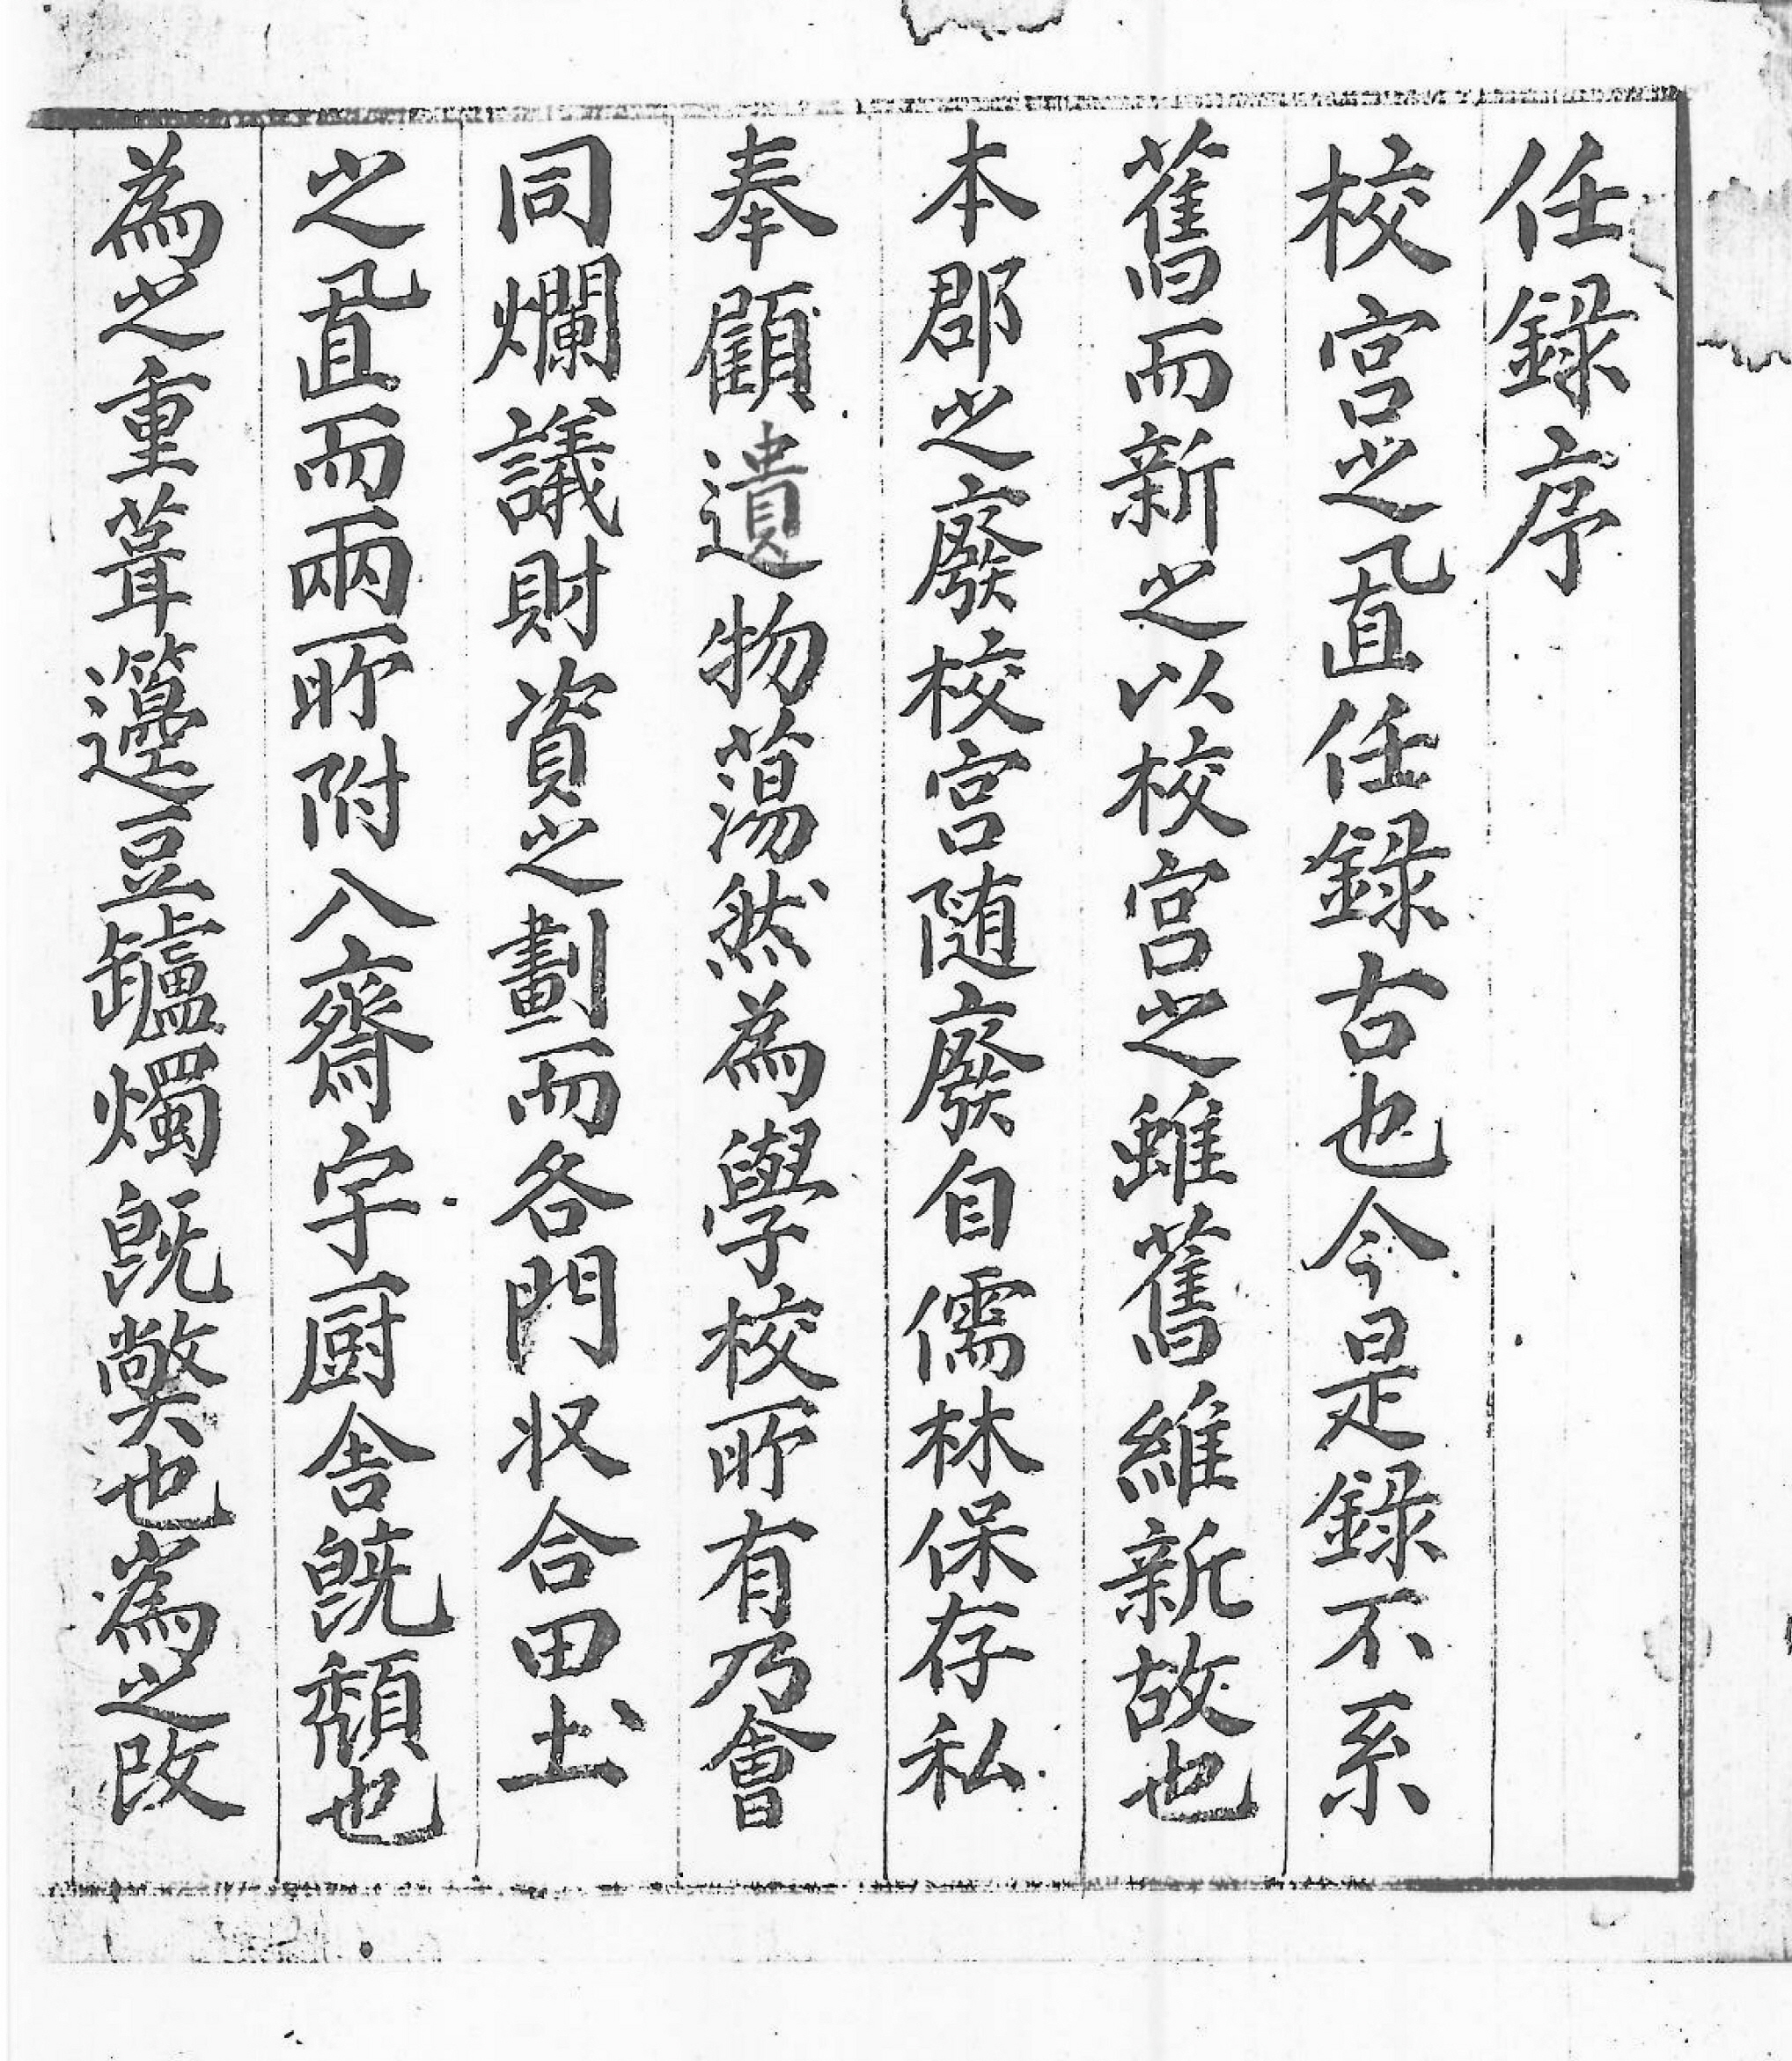 任錄序
校宮之直任錄古也今是錄不系
舊而新之以校宮之雖舊維新故也
本郡之廢校宮随廢自儒林保存私
奉顧遺物蕩然為學校所有乃會
同爛議財資之劃而各門收合田圡
之直而兩所附八齋宇厨舍旣頹也
為之重葺籩豆罏燭既獘也為之改